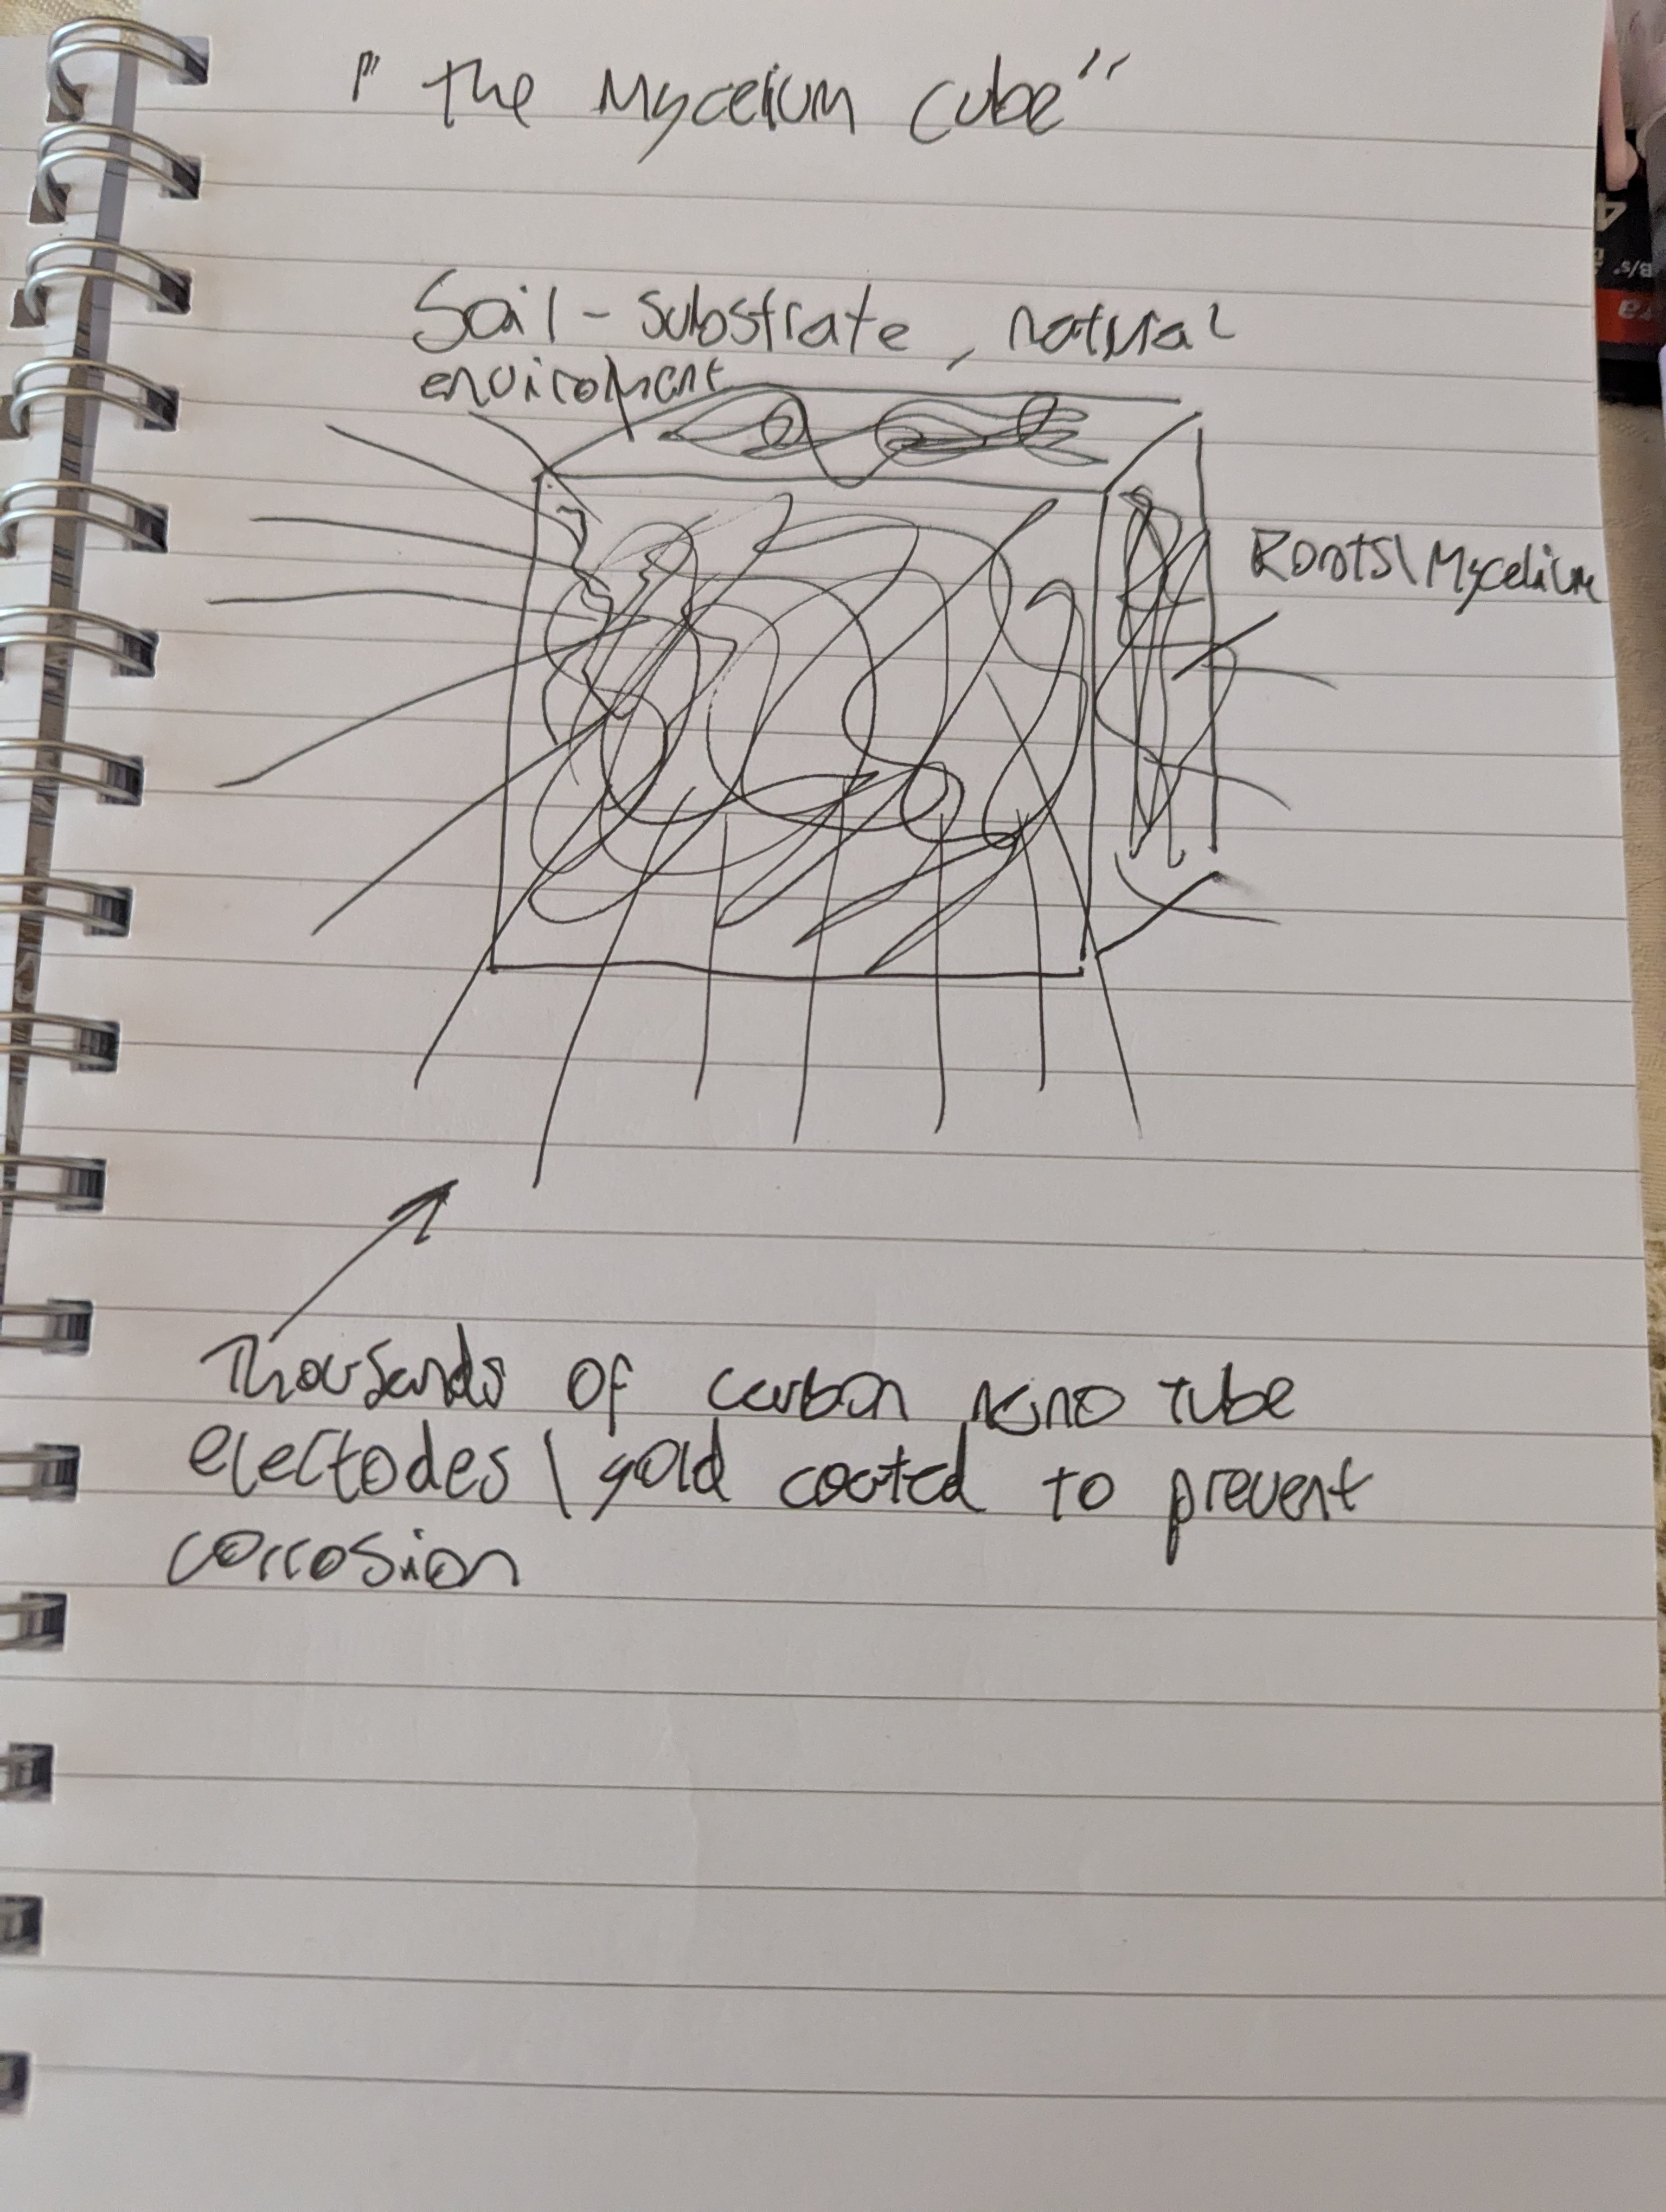 " the Mycelium Cube"
Soil - substrate, natural
enviroment
Roots\Mycelium
Thousands of carbon nano tube
electodes \ gold coated to prevent
corrosion
4
B/s